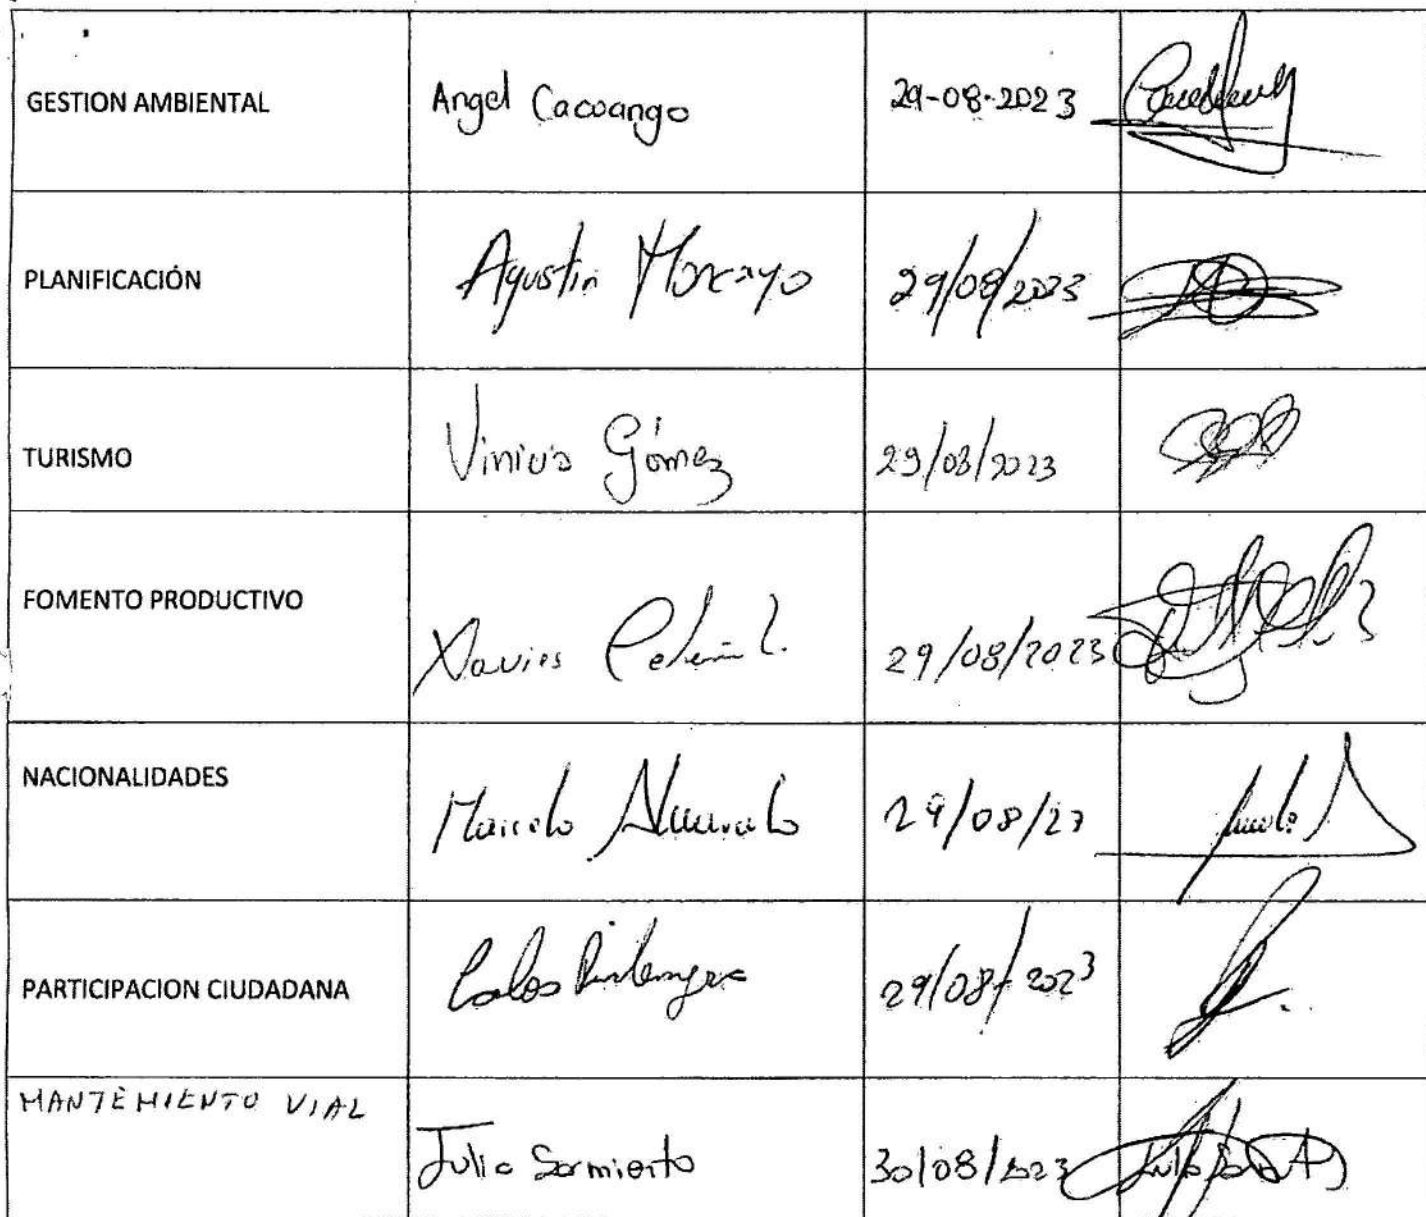 GESTION AMBIENTAL Angel Cacuango 29-08-2023
PLANIFICACIÓN Agustin Moncayo 29/08/2023
TURISMO Vinicio Gómez 29/08/2023
FOMENTO PRODUCTIVO Xavier 29/08/2023
NACIONALIDADES Marcelo 29/08/23
PARTICIPACION CIUDADANA Carlos 29/08/2023
MANTEMIENTO VIAL Julio Sarmiento 30/08/2023